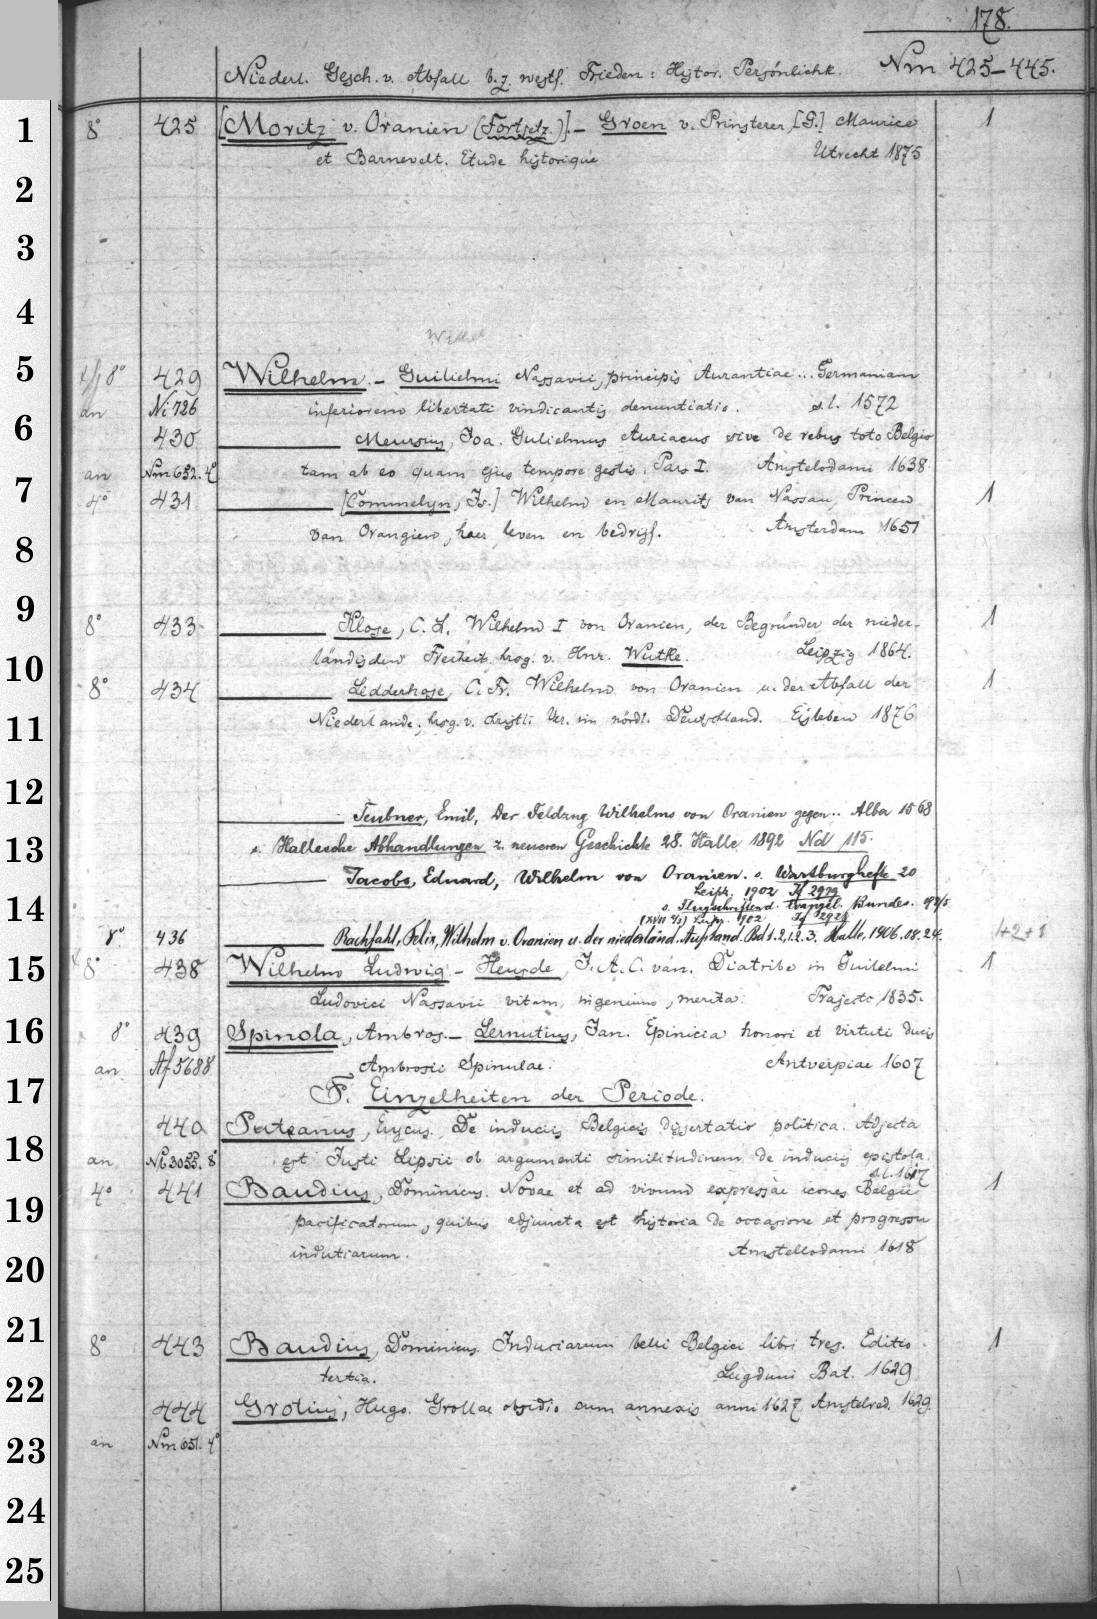 178.
Niederl. Gesch. v. Abfall b. z. westf. Frieden: Histor. Persönlichk. Nm 425-445.
1 8° 425 [Moritz v. Oranien (Fortsetz.)]. - Groen v. Prinsterer, [G.] Maurice 1
et Barnevelt. Etude historique Utrecht 1875
2
3
4
5 8° 429 Wilhelm. - Guilielmi Nassavii, principis Aurantiae... Germaniam
an Ni 726 inferiorem libertati vindicantis denuntiatio. s. l. 1572
6 430 Meursius, Joa. Gulielmus Auriacus sive de rebus toto Belgio
an Nm 652. 4° tam ab eo quam eius tempore gestis. Pars I. Amstelodami 1638.
7 4° 431 [Commelyn, Is.] Wilhelm en Maurits van Nassau, Princen 1
van Orangien, haer leven en bedrijf. Amsterdam 1651
8
9 8° 433 Klose, C. L. Wilhelm I von Oranien, der Begründer der nieder- 1
10 ländischen Freiheit, hrsg. v. Hnr. Wutke. Leipzig 1864.
8° 434 Ledderhose, C. Fr. Wilhelm von Oranien u. der Abfall der 1
11 Niederlande; hrsg. v. christl. Ver. im nördl. Deutschland. Eisleben 1876
12
Teubner, Emil, Der Feldzug Wilhelms von Oranien gegen.. Alba 1568
13 s. Hallesche Abhandlungen z. neueren Geschichte 28. Halle 1892 Nd 115.
Jacobs, Eduard, Wilhelm von Oranien. s. Wartburghefte 20
Leipz. 1902 If 2929
14 s. Flugschriften d. Evangel. Bundes.
Leipz. 1902
8° 436 Rachfahl, Felix, Wilhelm v. Oranien u. der niederländ. Aufstand. Bd 1. 2,1.2. 3. Halle, 1906. 08. 24. 1+2+1
15 8° 438 Wilhelm Ludwig - Heusde, J. A. C. van. Diatribe in Guilelmi 1
Ludovici Nassavii vitam, ingenium, merita. Trajecti 1835.
16 8° 439 Spinola, Ambros. - Lernutius, Jan. Epinicia honori et virtuti ducis
an Af 5688 Ambrosii Spinulae. Antverpiae 1607
17 F. Einzelheiten der Periode.
440 Puteanus, Erycus. De induciis Belgicis dissertatio politica. Adjecta
18 an 8° est Justi Lipsii ob argumenti similitudinem de induciis epistola.
s. l. 1617
19 4° 441 Baudius, Dominicus. Novae et ad vivum expressae icones Belgii 1
pacificatorum, quibus adjuncta est historia de occasione et progressu
20 indutiarum. Amstellodami 1618
21 8° 443 Baudius, Dominicus. Induciarum belli Belgici libri tres. Editio 1
22 tertia. Lugduni Bat. 1629
444 Grotius, Hugo. Grollae obsidio cum annexis anni 1627. Amstelred. 1629.
23 an Nm 651. 4°
24
25